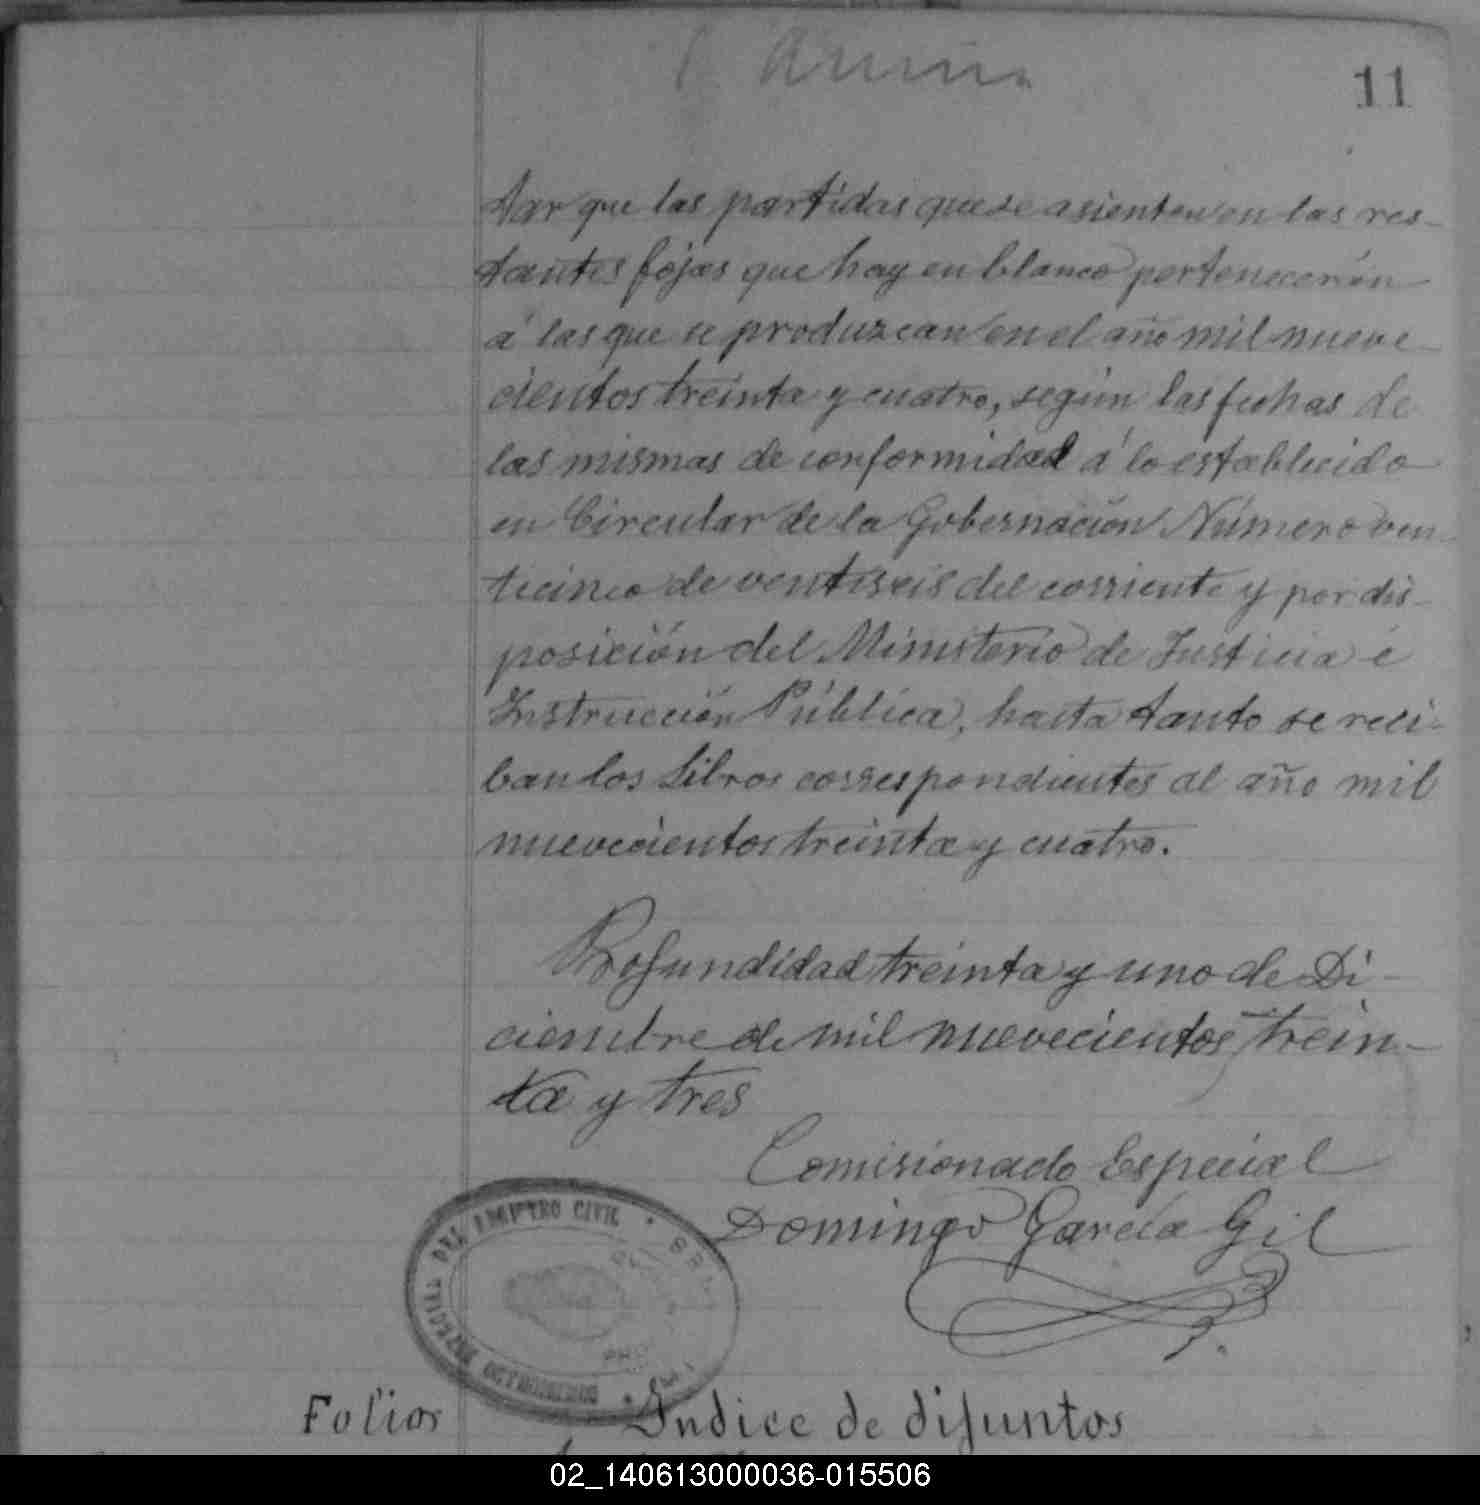 11
tar que las partidas que se asienten en las res-
tantes fojas que hay en blanco pertenecerán
á las que se produzcan en el año mil nueve-
cientos treinta y cuatro, según las fechas de
las mismas de conformidad á lo establecido
en Circular de la Gobernación Número ven-
ticinco de ventiseis del corriente y por dis-
posición del Ministerio de Justicia é
Instrucción Pública, hasta tanto se reci-
ban los Libros correspondientes al año mil
nuevecientos treinta y cuatro.
Profundidad treinta y uno de Di-
ciembre de mil nuevecientos trein-
ta y tres
Comisionado Especial
Domingo García Gil
DEL REGISTRO CIVIL
Folios
Indice de difuntos
02_140613000036-015506